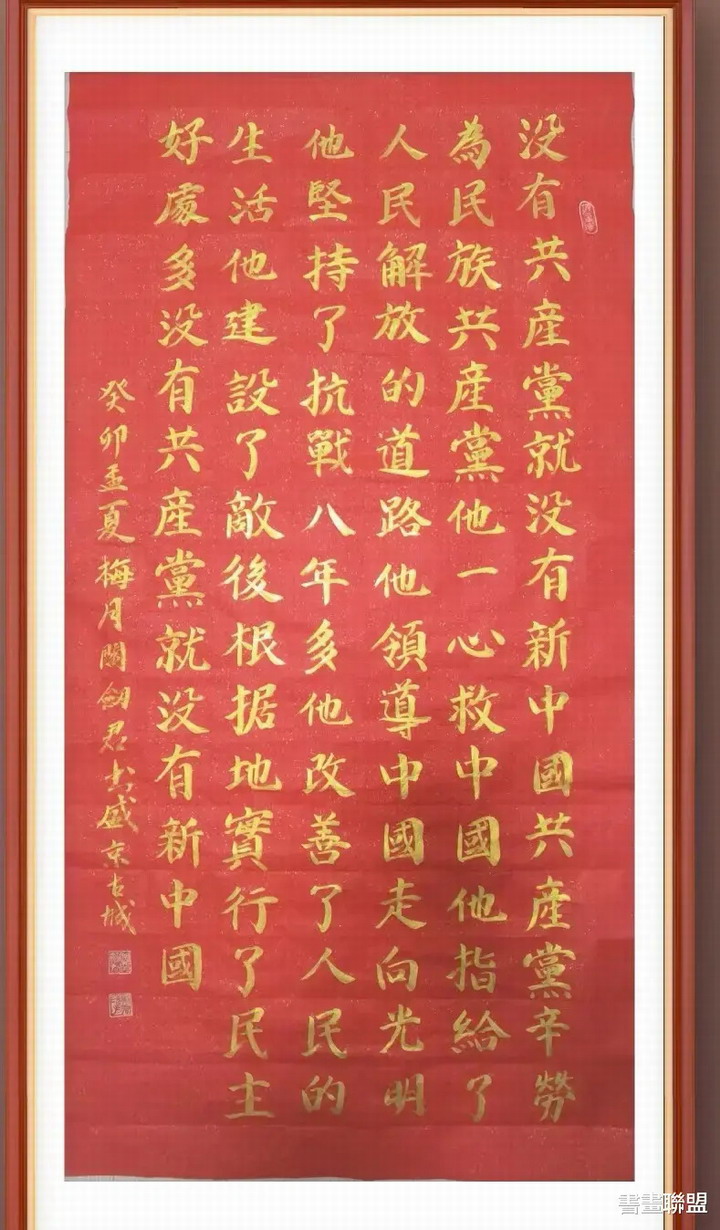 没有共産黨就没有新中國共産黨辛勞
為民族共産黨他一心救中國他指給了
人民解放的道路他領導中國走向光明
他堅持了抗戰八年多他改善了人民的
生活他建設了敵後根据地實行了民主
好處多没有共産黨就没有新中國
癸卯孟夏梅月關劍君书盛京古城
書畫聯盟